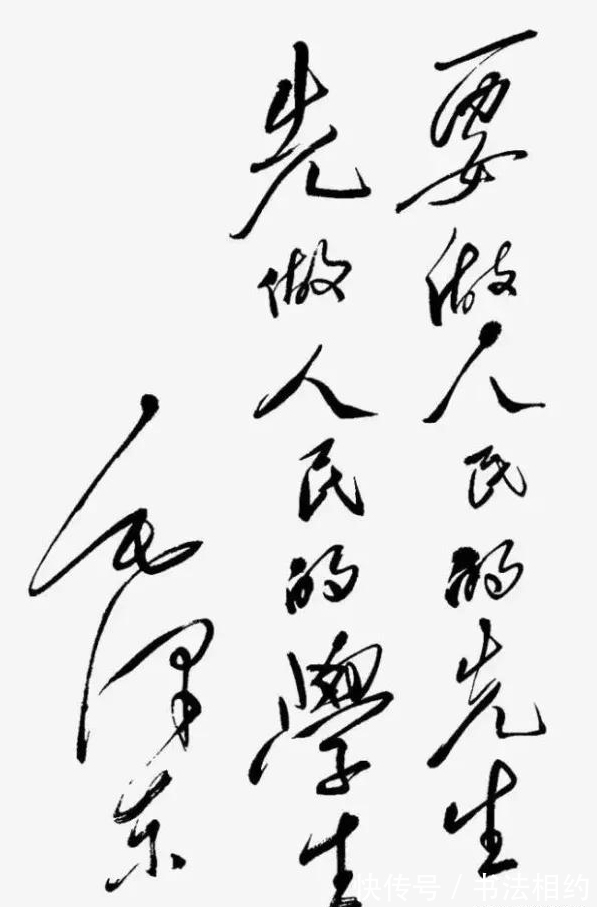 要做人民的先生
先做人民的學生
毛泽东
快传号 / 书法相约